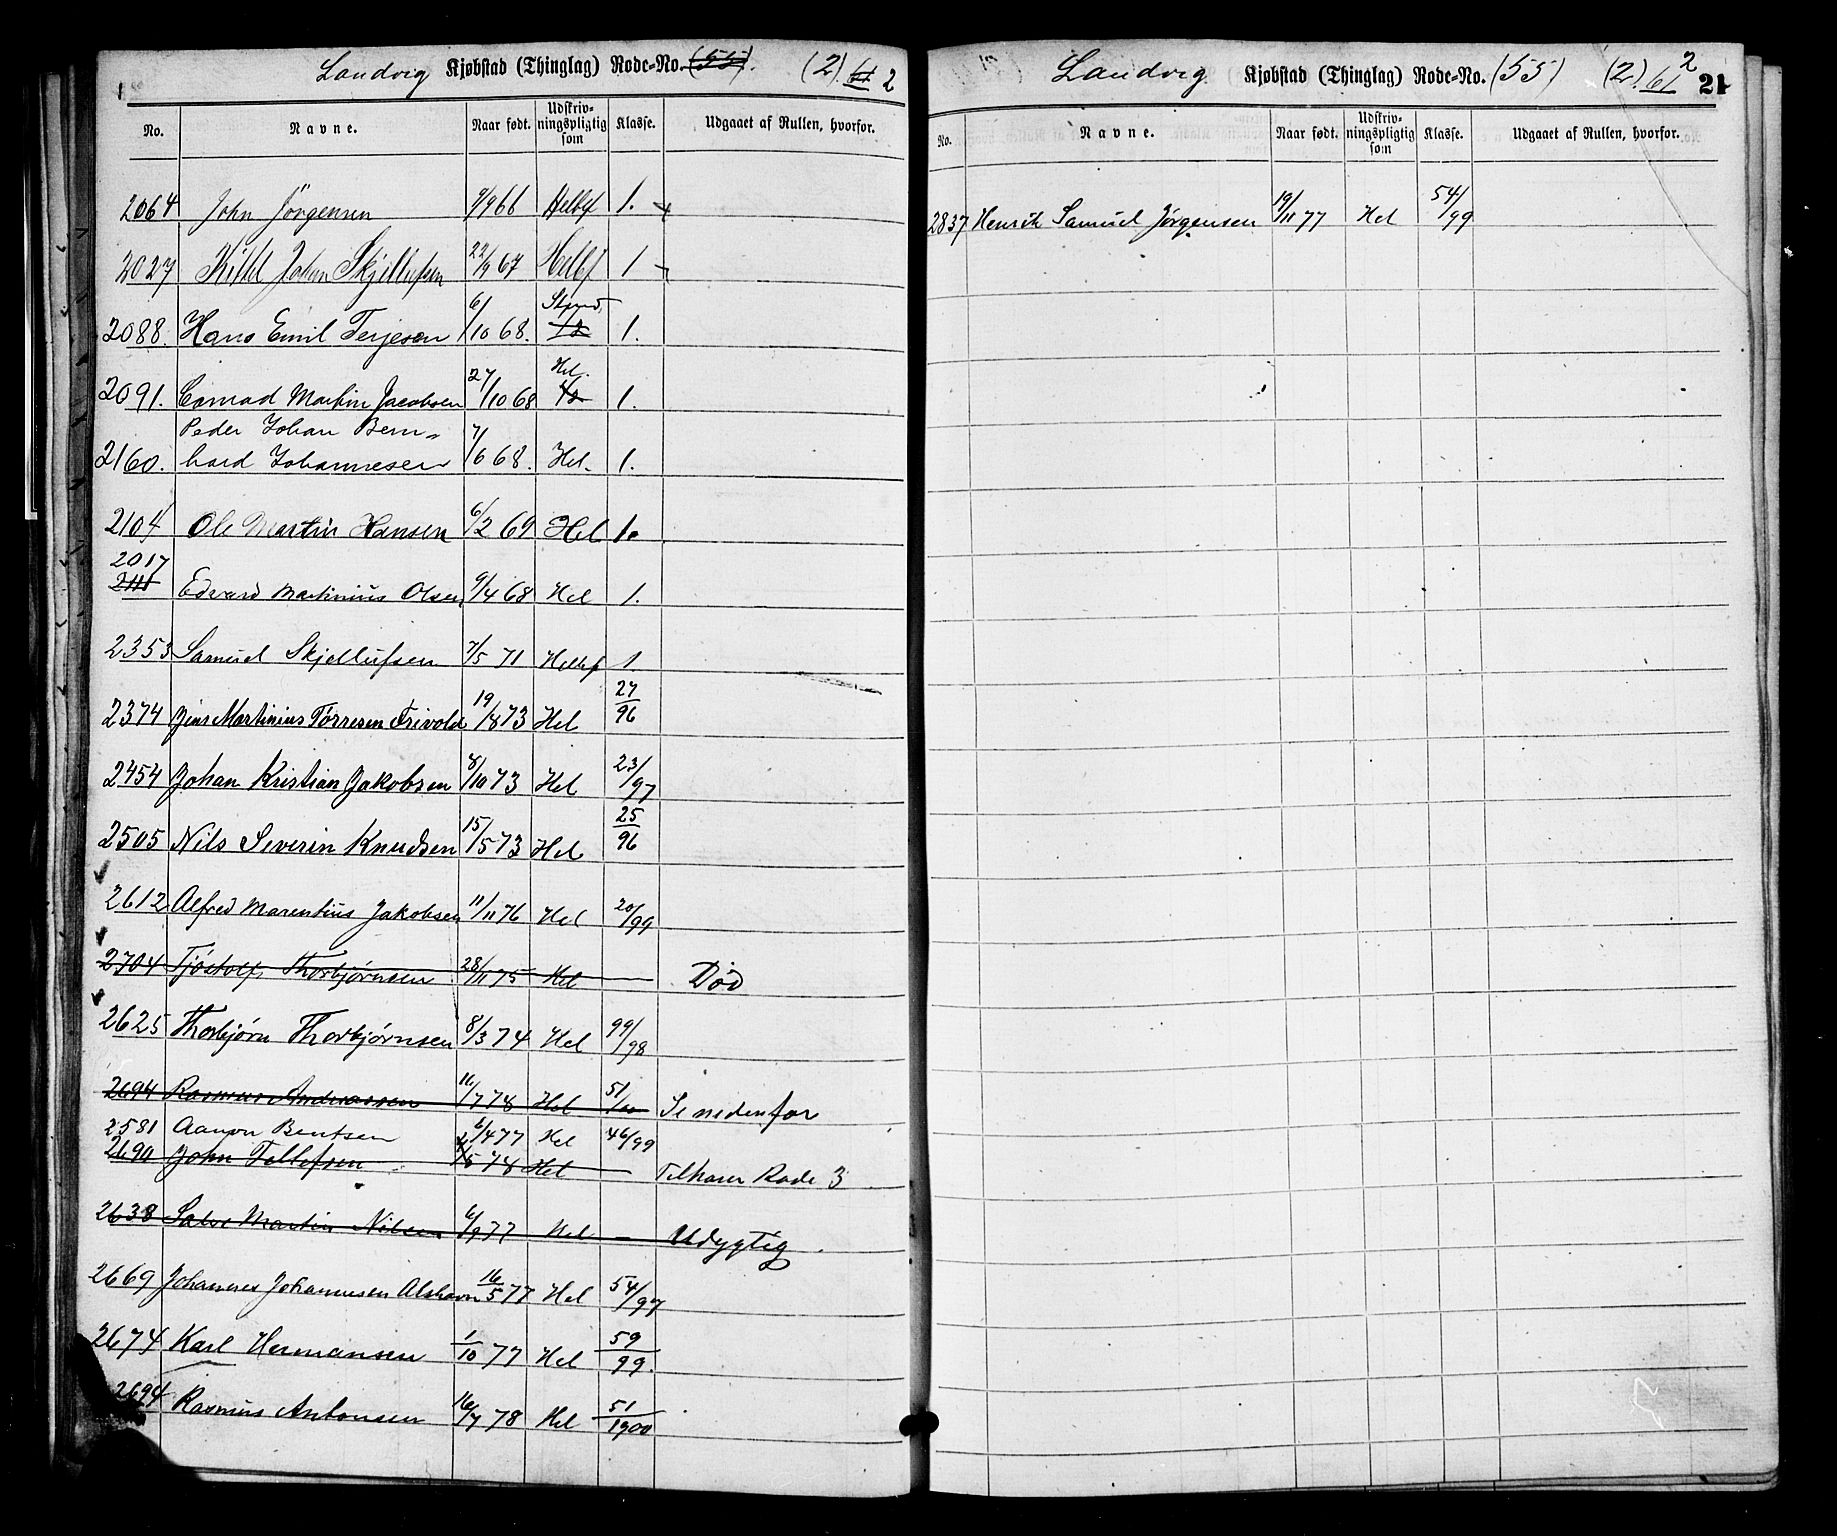 Landvig Kjøbstad (Thinglag) Rode-No. (55). (2) 61 2
No. Navne. Naar født. Udskriv-ningspligtig som Klasse. Udgaaet af Rullen, hvorfor.
2064 John Jörgensen 9/9 66 Helbef 1.
2027 Kittil Johan Skjellufsen 22/9 67 Helbf 1
2088. Hans Emil Terjesen 6/10 68. Strand 1/2 1.
2091. Conrad Martin Jacobsen 27/10 68 Hel. 1/2 1.
Peder Johan Bern-
2160. hard Johannesen 7/6 68. Hel. 1.
2104 Ole Martin Hansen 6/2 69 Hel 1.
2017
2111 Edvard Martinius Olsen 9/4 68 Hel 1.
2353 Samuel Skjellufsen 7/5 71 Helbef 1
2374 Jens Martinius Törresen Trivold 19/8 73 Hel 27/96
2454 Johan Kristian Jakobsen 8/10 73 Hel 23/97
2505 Nils Severin Knudsen 15/5 73 Hel 25/96
2612 Alfred Marentius Jakobsen 11/11 76 Hel 20/99
2704 Tjöstolf Thorbjørnsen 28/11 75 Hel — Død
2625 Thorbjørn Thorbjørnsen 8/3 74 Hel 99/98
2694 Rasmus Andreassen 16/7 78 Hel 51/00 Se nedenfor
2581 Aanon Bentsen 6/4 77 Hel 46/99
2690 John Tellefsen /5 78 Hel — Tilhører Rode 3
2638 Salve Martin Nilsen 6/9 77 Hel — Udygtig.
2669 Johannes Johannesen Alshavn 16/5 77 Hel 54/97
2674 Karl Hermansen 1/10 77 Hel 59/99.
2694 Rasmus Antonsen 16/7 78 Hel 51/1900
Landvig Kjøbstad (Thinglag) Rode-No. (55) (2). 61 2 21
No. Navne. Naar født. Udskriv-ningspligtig som Klasse. Udgaaet af Rullen, hvorfor.
2837 Henrik Samuel Jørgensen 19/11 77 Hel 54/99